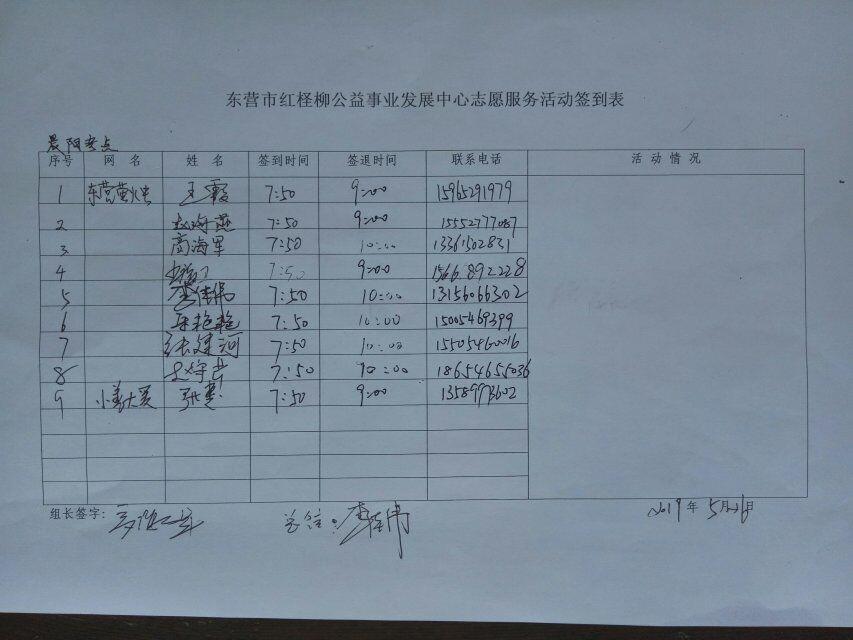 东营市红柽柳公益事业发展中心志愿服务活动签到表
晨阳考点
序号 网名 姓名 签到时间 签退时间 联系电话 活动情况
1 东营萤火虫 王霞 7:50 9:00 15965291979
2 赵海燕 7:50 9:00 15552777087
3 商海军 7:50 10:00 13361502831
4 7:50 9:00 15661892228
5 李佳伟 7:50 10:00 13156066302
6 艳艳 7:50 10:00 15005469399
7 张建河 7:50 10:00 15505460016
8 7:50 10:00 18654655036
9 小美大爱 张慧 7:50 9:00 13589973602
组长签字: 李佳伟 2019年5月26日